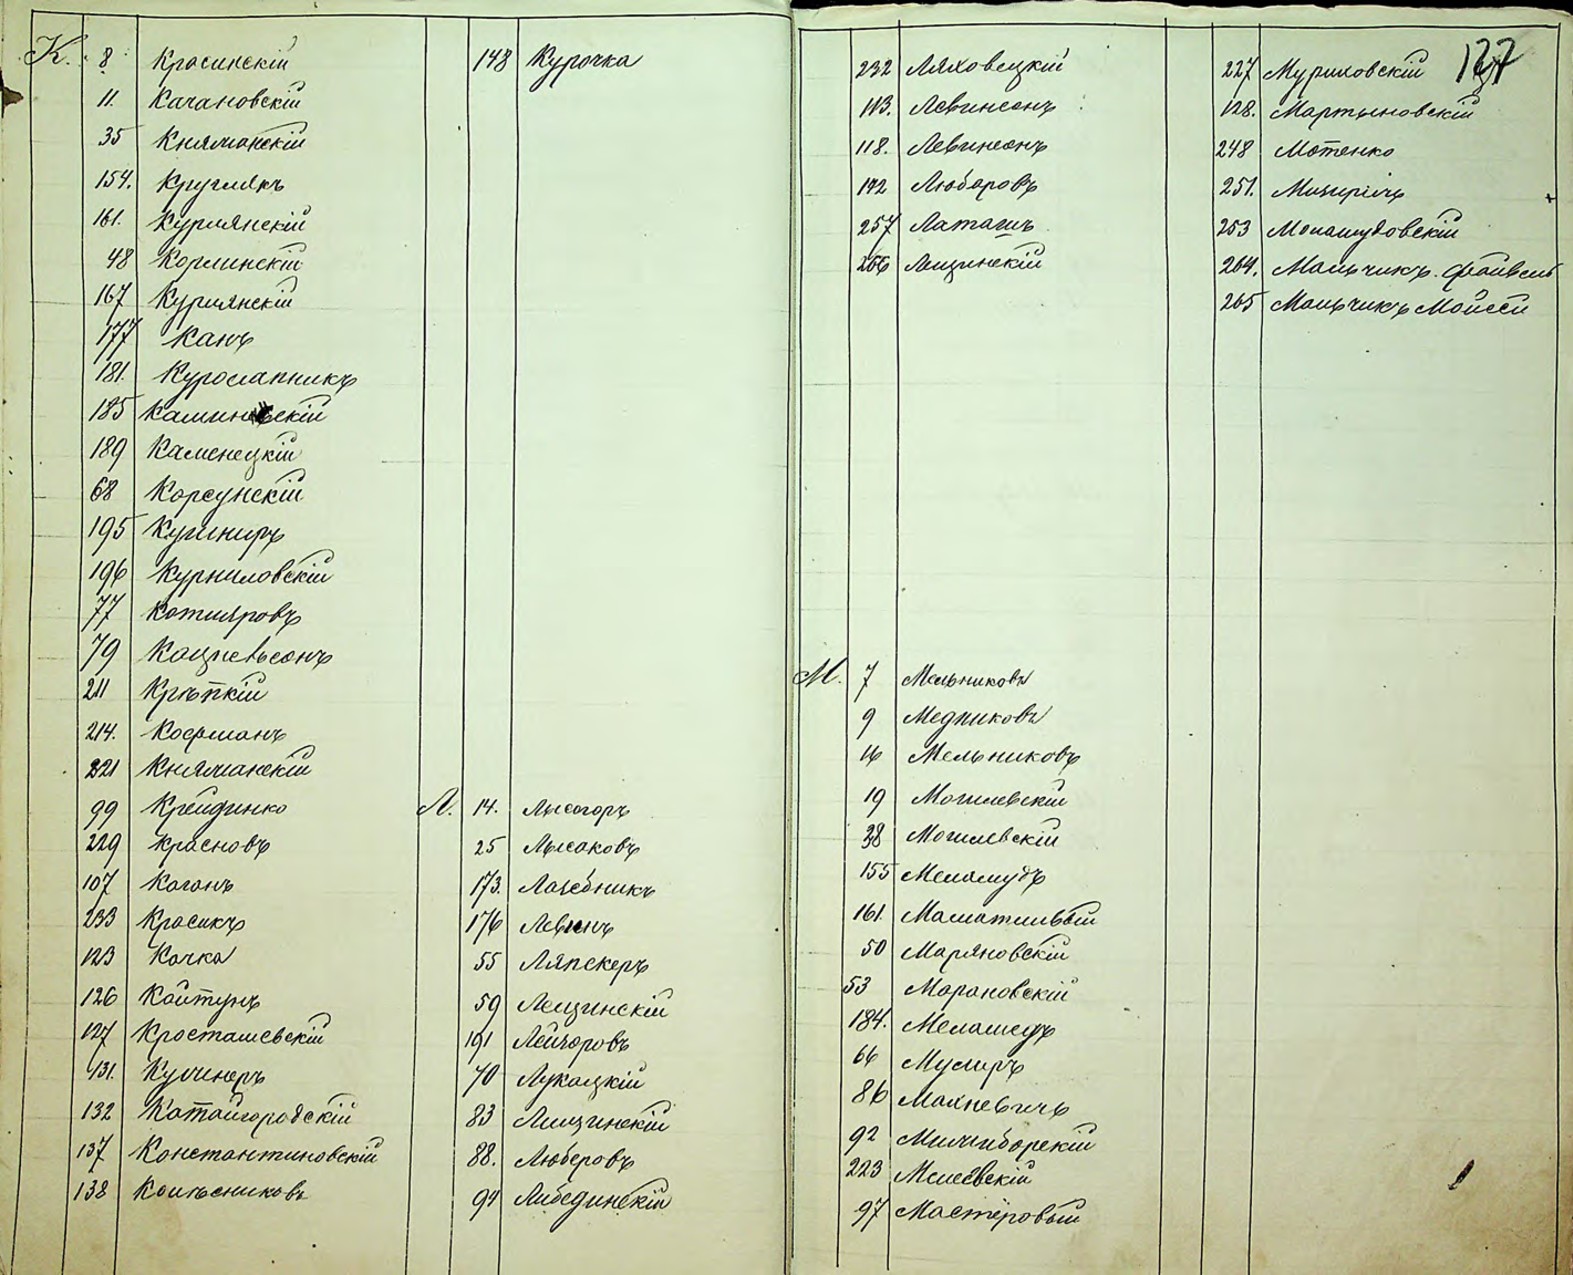 К. 8 Красинскій
11. Качановскій
35 Княжанскій
154. Круглякъ
161. Курлянскій
48 Корлинскій
167 Курлянскій
177 Канъ
181. Курослапникъ
185 Каминскій
189 Каменецкій
68 Корсунскій
195 Кушниръ
196 Курниловскій
77 Котляровъ
79 Кацнельсонъ
211 Крѣпкій
214. Кофманъ
221 Княжанскій
99 Крейдинко
229 Красновъ
107 Каганъ
233 Красикъ
123 Качка
126 Койтунъ
127 Кросташевскій
131. Кушнеръ
132 Катайгородскій
137 Константиновскій
138 Колѣсниковъ
148 Курочка
Л. 14. Лысогоръ
25 Лысаковъ
173. Лазебникъ
176 Левинъ
55 Ляпскеръ
59 Лещинскій
191 Лейзоровъ
70 Лукацкій
83 Лищинскій
88. Люберовъ
94 Либединскій
127
232 Ляховецкій
113. Левинсонъ
118. Левинсонъ
142 Любаровъ
257 Латашъ
266 Лещинскій
М. 7 Мельниковъ
9 Медниковъ
16 Мельниковъ
19 Могилевскій
38 Могилевскій
155 Меламудъ
161. Маматливый
50 Маряновскій
53 Марановскій
184. Меламедъ
66 Мулиръ
86 Махневичъ
92 Миличборскій
223 Мелевскій
97 Мастеровый
227 Мурыховскій
128. Мартыновскій
248 Мотенко
251. Мизирічъ
253 Моламудовскій
264. Мальчикъ. Файвель
265 Мальчикъ Мойсей